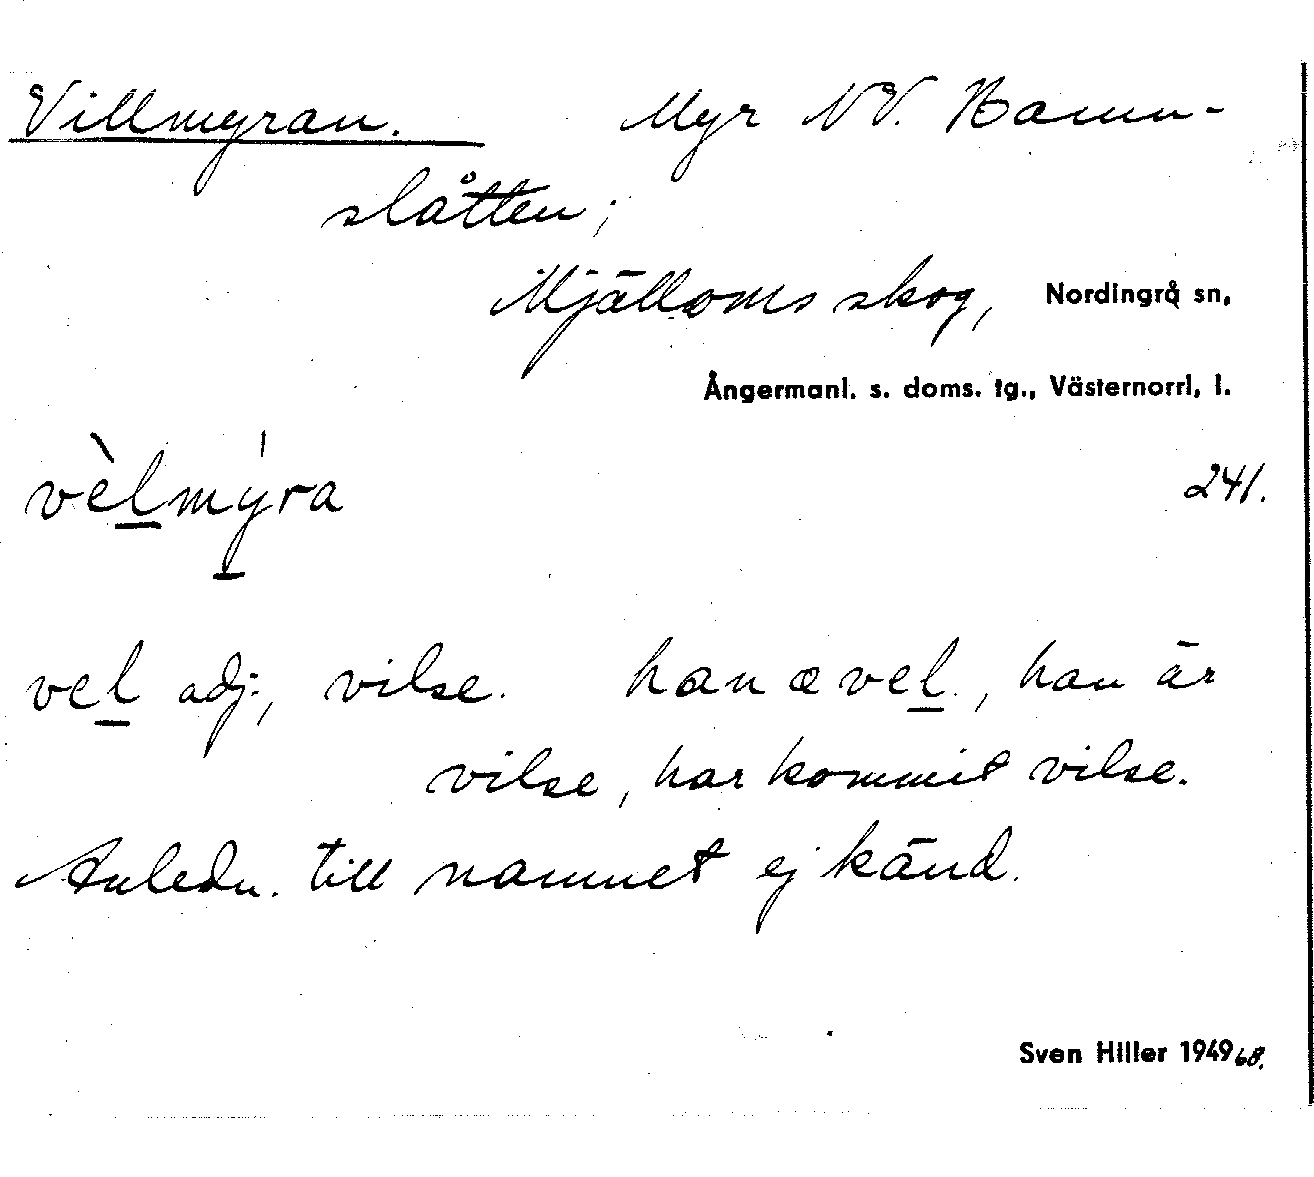 Villmyran. Myr NV. Hamn-
slåtten;
Mjälloms skog, Nordingrå sn,
Ångermanl. s. doms. tg., Västernorrl, l.
vèlmýra 241.
vel adj., vilse. han æ vel., han är
vilse, har kommit vilse.
Anledn. till namnet ej känd.
Sven Hiller 1949 68.